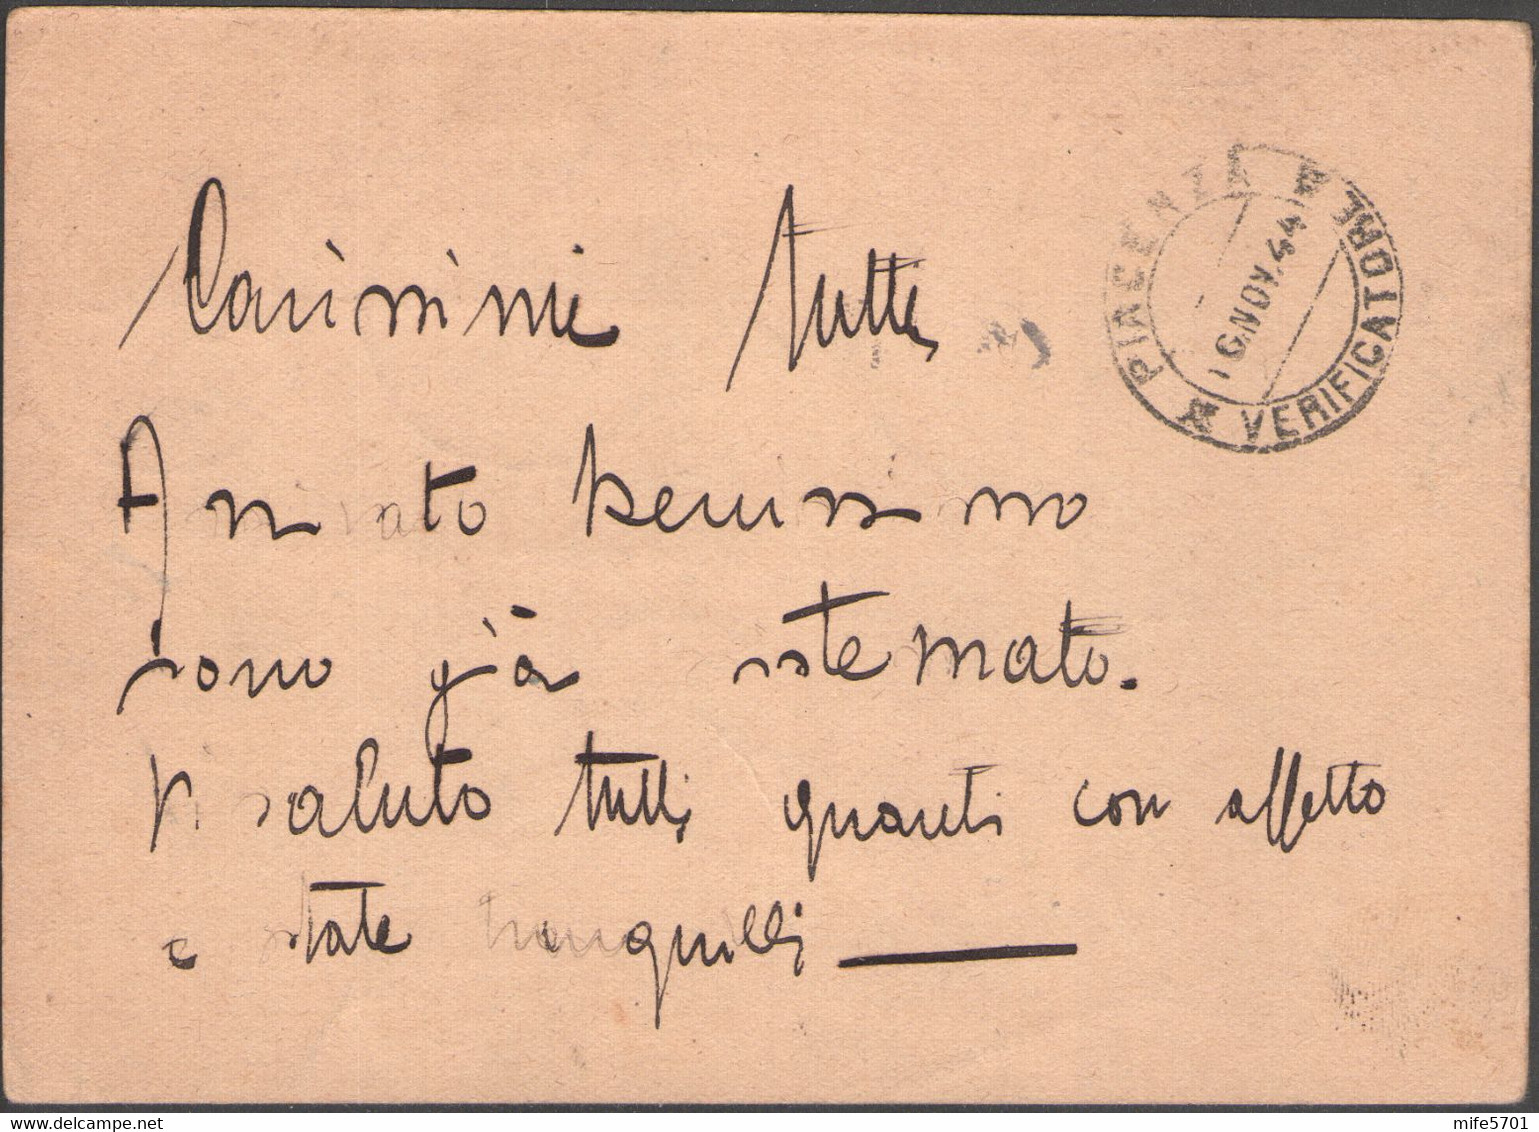 Carissimi tutti
Arrivato benissimo
sono già sistemato.
Vi saluto tutti quanti con affetto
e state tranquilli
PIACENZA VERIFICATORE
6 NOV. 44
mife5701